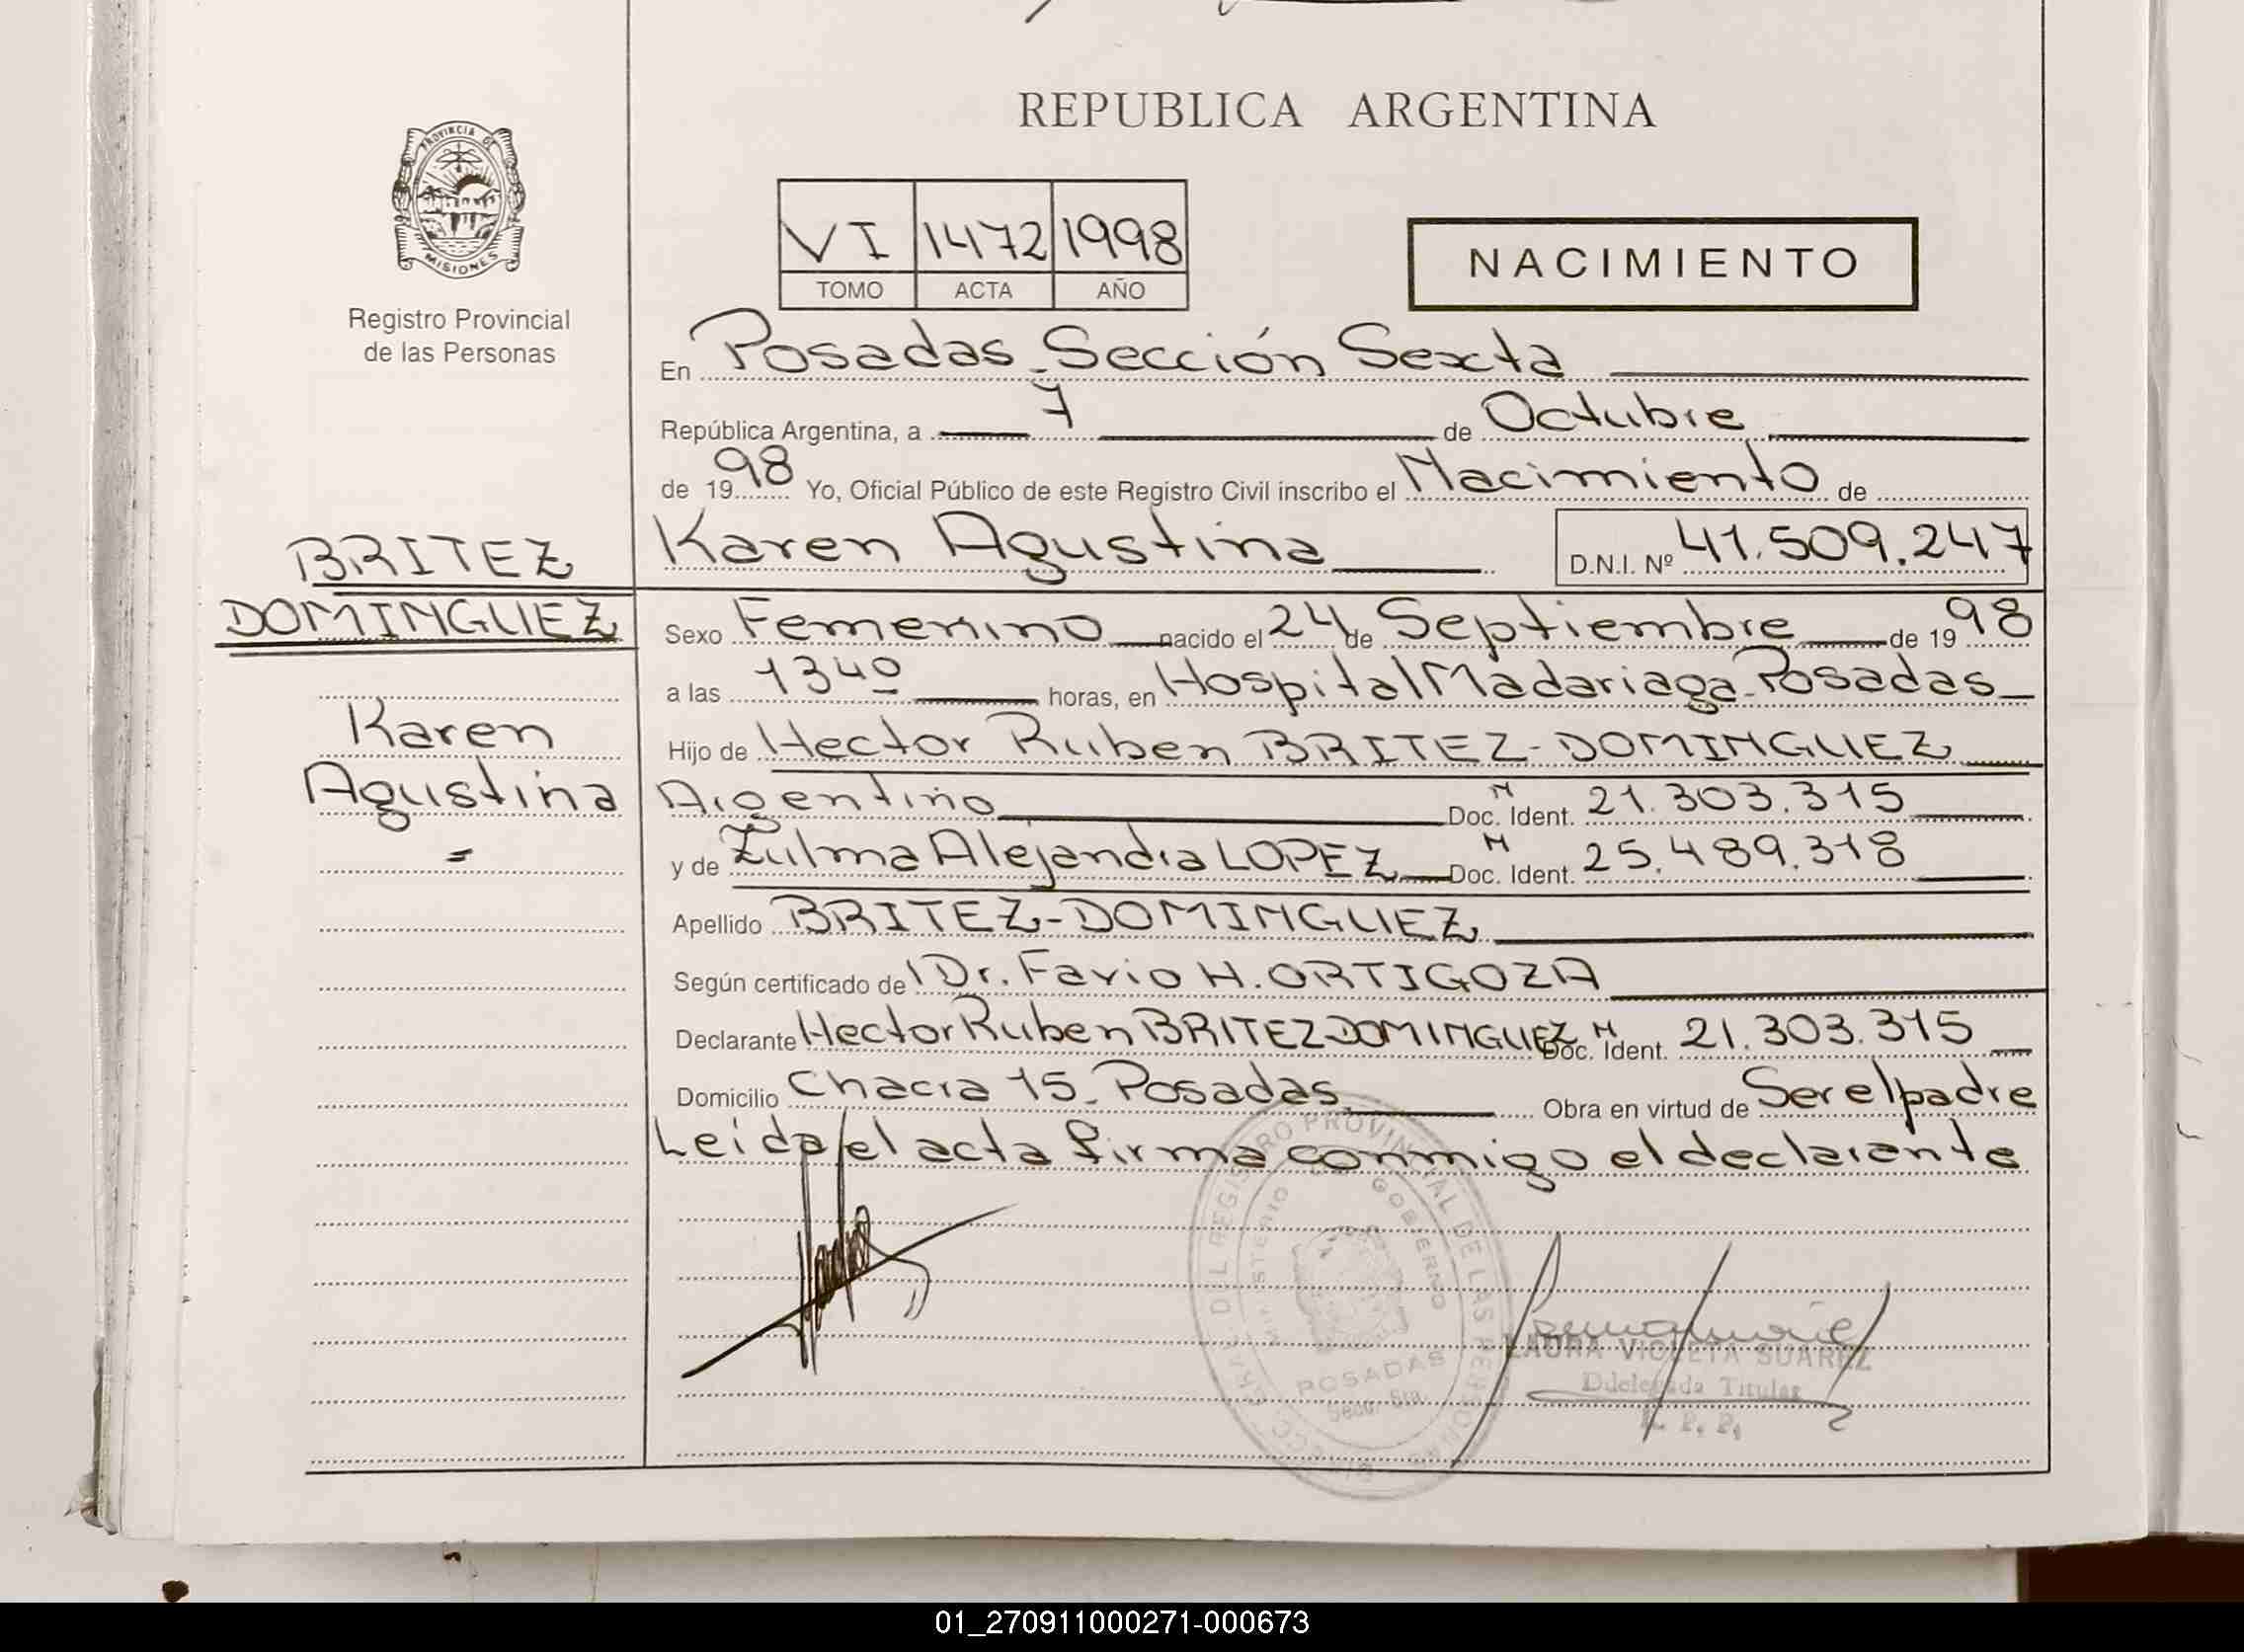 REPUBLICA ARGENTINA
PROVINCIA DE
MISIONES
Registro Provincial
de las Personas
VI 1472 1998
TOMO ACTA AÑO
NACIMIENTO
En Posadas - Sección Sexta
República Argentina, a 7 de Octubre
de 1998 Yo, Oficial Público de este Registro Civil inscribo el Nacimiento de
Karen Agustina D.N.I. Nº 41.509.247
BRITEZ
DOMINGUEZ
Karen
Agustina
=
Sexo Femenino nacido el 24 de Septiembre de 1998
a las 13 40 horas, en Hospital Madariaga - Posadas
Hijo de Hector Ruben BRITEZ-DOMINGUEZ
Argentino Doc. N Ident. 21.303.315
y de Zulma Alejandra LOPEZ Doc. N Ident. 25.489.318
Apellido BRITEZ-DOMINGUEZ
Según certificado de Dr. Favio H. ORTIGOZA
Declarante Hector Ruben BRITEZ-DOMINGUEZ Doc. N Ident. 21.303.315
Domicilio Chacra 15 - Posadas Obra en virtud de Ser el padre
Leida el acta firma conmigo el declarante
REGISTRO PROVINCIAL DE LAS PERSONAS
MINISTERIO GOBERNO
POSADAS
LAURA VIOLETA SUAREZ
Titular
01_270911000271-000673